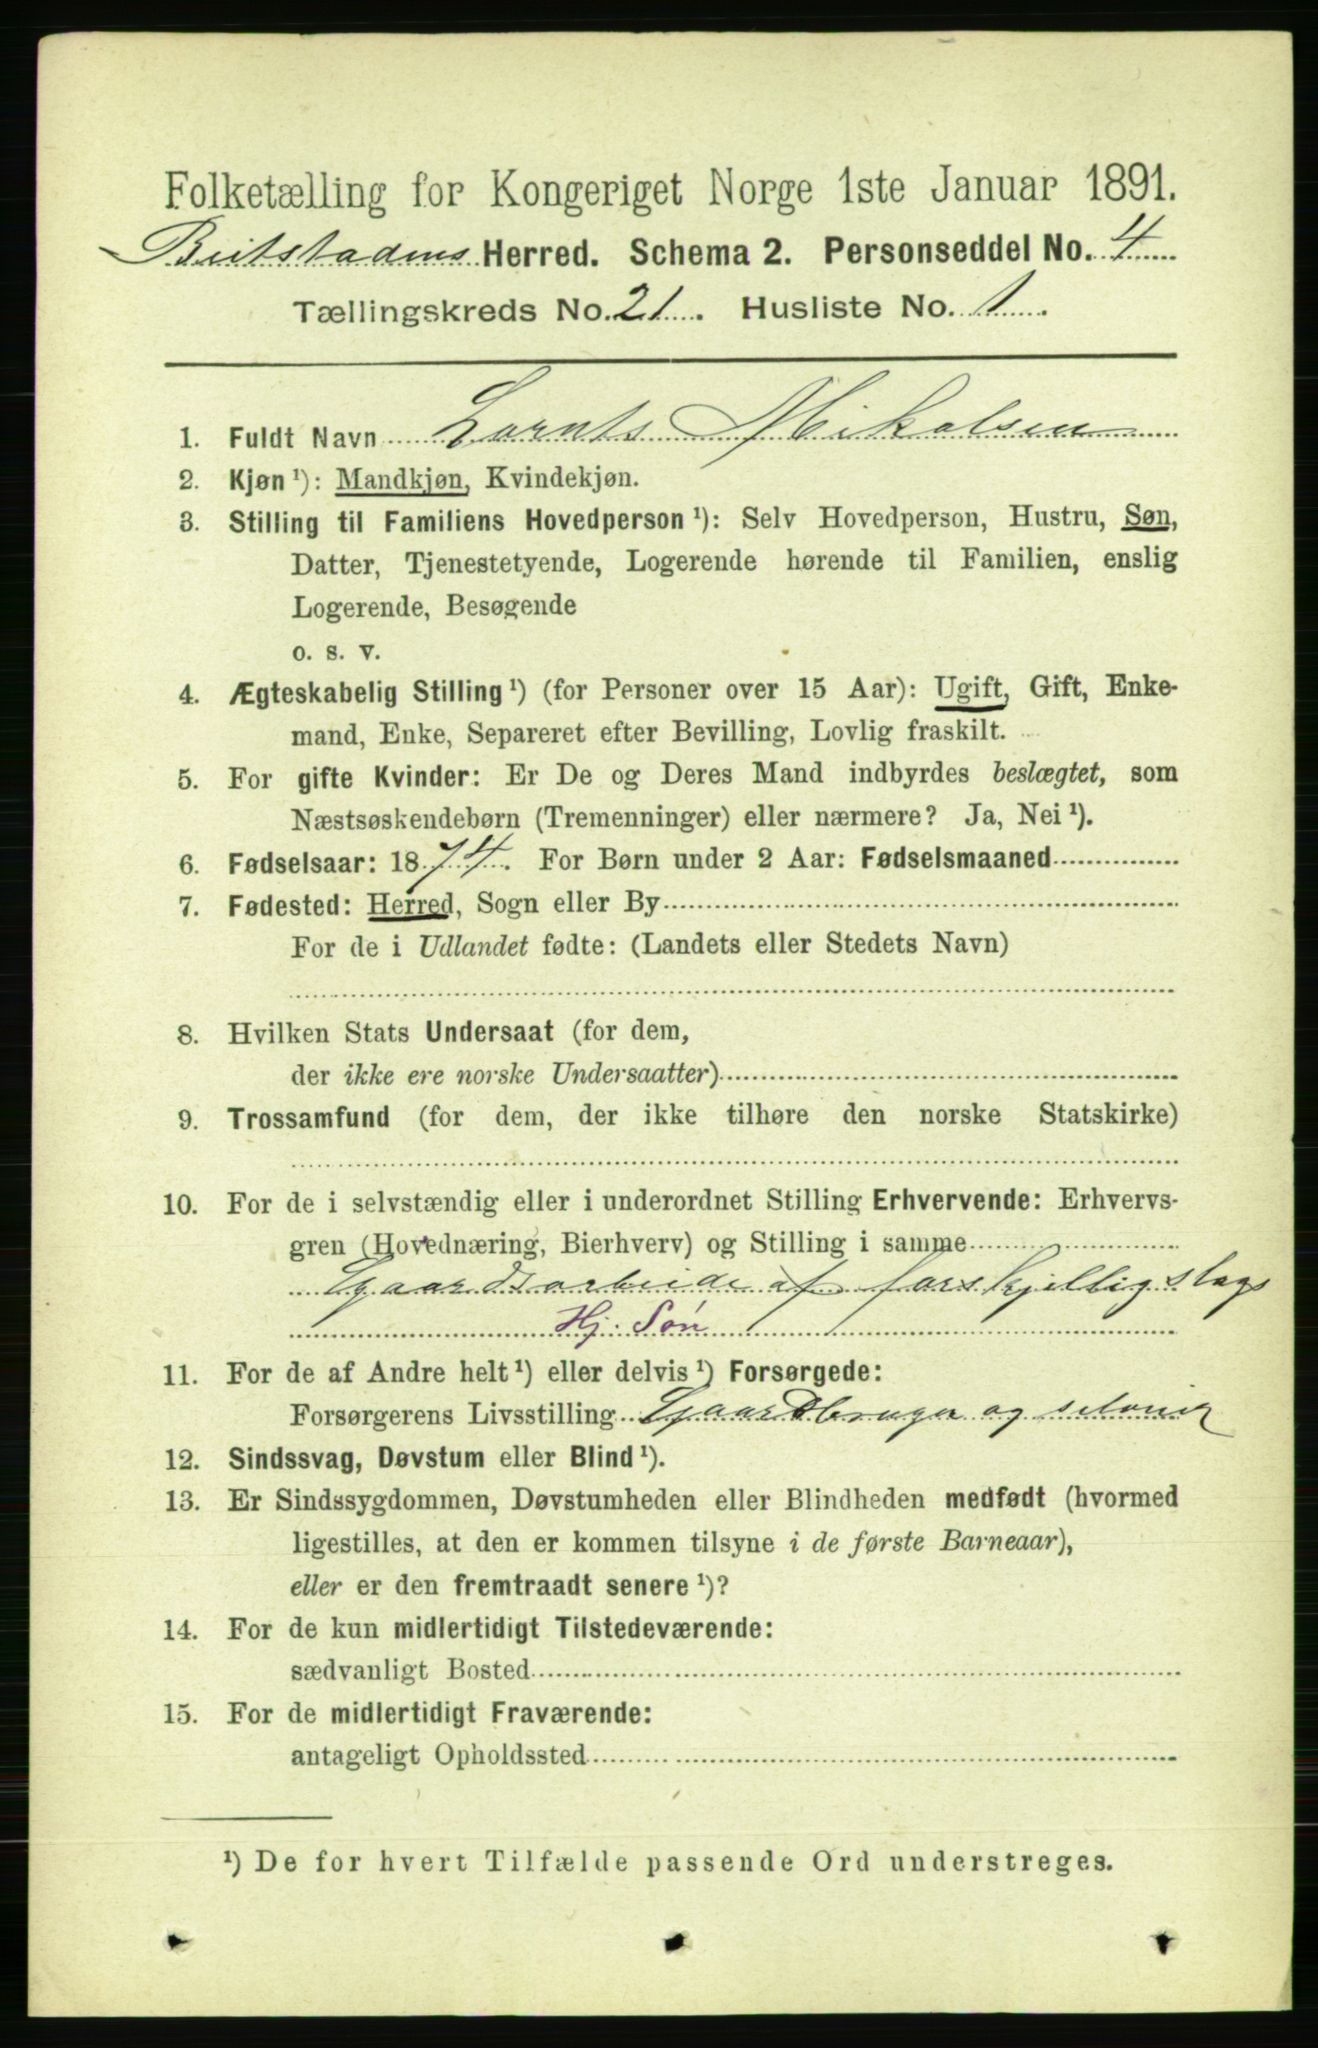 Folketælling for Kongeriget Norge 1ste Januar 1891.
Beitstadens Herred. Schema 2. Personseddel No. 4
Tællingskreds No. 21. Husliste No. 1
1. Fuldt Navn Lornts Mikalsen
2. Kjøn ¹): Mandkjøn, Kvindekjøn.
3. Stilling til Familiens Hovedperson ¹): Selv Hovedperson, Hustru, Søn,
Datter, Tjenestetyende, Logerende hørende til Familien, enslig
Logerende, Besøgende
o. s. v.
4. Ægteskabelig Stilling ¹) (for Personer over 15 Aar): Ugift, Gift, Enke-
mand, Enke, Separeret efter Bevilling, Lovlig fraskilt.
5. For gifte Kvinder: Er De og Deres Mand indbyrdes beslægtet, som
Næstsøskendebørn (Tremenninger) eller nærmere? Ja, Nei ¹).
6. Fødselsaar: 1874. For Børn under 2 Aar: Fødselsmaaned
7. Fødested: Herred, Sogn eller By
For de i Udlandet fødte: (Landets eller Stedets Navn)
8. Hvilken Stats Undersaat (for dem,
der ikke ere norske Undersaatter)
9. Trossamfund (for dem, der ikke tilhøre den norske Statskirke)
10. For de i selvstændig eller i underordnet Stilling Erhvervende: Erhvervs-
gren (Hovednæring, Bierhverv) og Stilling i samme
Gaardsarbeide af forskjellig slags
Hj. Søn
11. For de af Andre helt ¹) eller delvis ¹) Forsørgede:
Forsørgerens Livsstilling Gaardbruger og seleier
12. Sindssvag, Døvstum eller Blind ¹).
13. Er Sindssygdommen, Døvstumheden eller Blindheden medfødt (hvormed
ligestilles, at den er kommen tilsyne i de første Barneaar),
eller er den fremtraadt senere ¹)?
14. For de kun midlertidigt Tilstedeværende:
sædvanligt Bosted
15. For de midlertidigt Fraværende:
antageligt Opholdssted
¹) De for hvert Tilfælde passende Ord understreges.